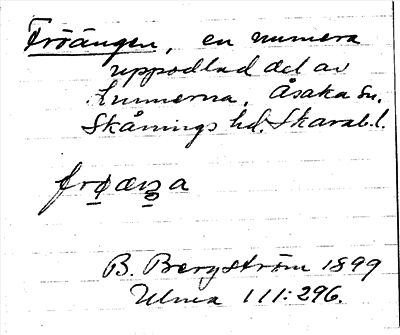 Fröängen, en numera
uppodlad del av
Ennerna, Åsaka sn.
Skånings hd. Skarab.l.
frøæŋa
B. Bergström 1899
Ulma 111:296.